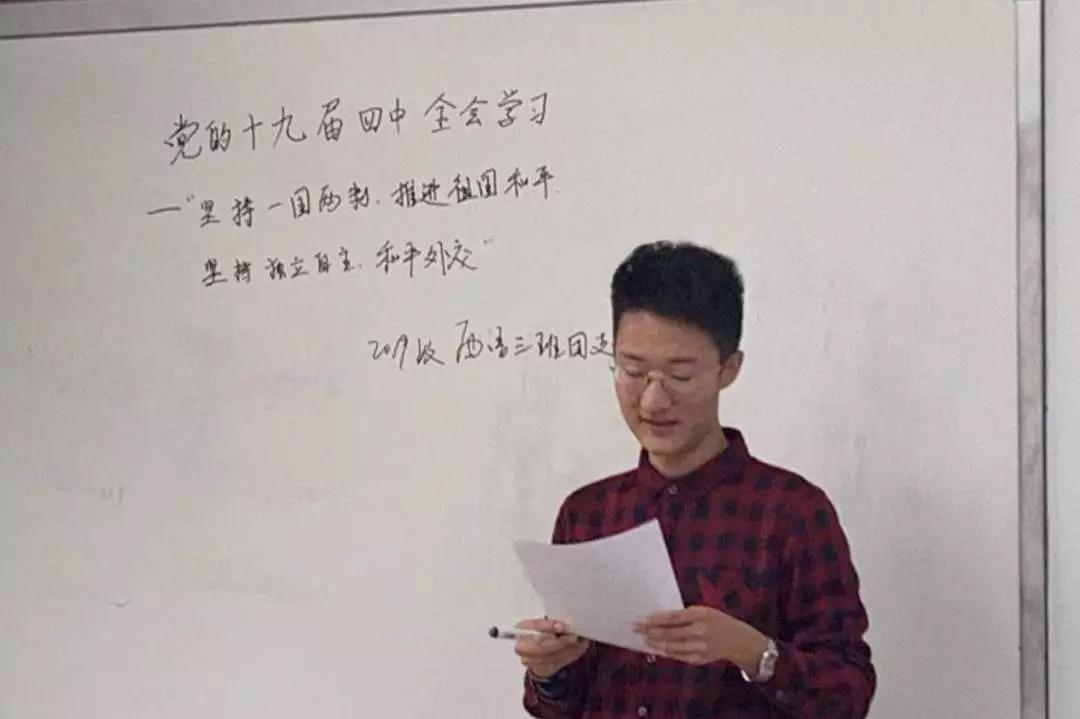 党的十九届四中全会学习
—"坚持一国两制,推进祖国和平
坚持独立自主,和平外交"
2019级西语三班团支